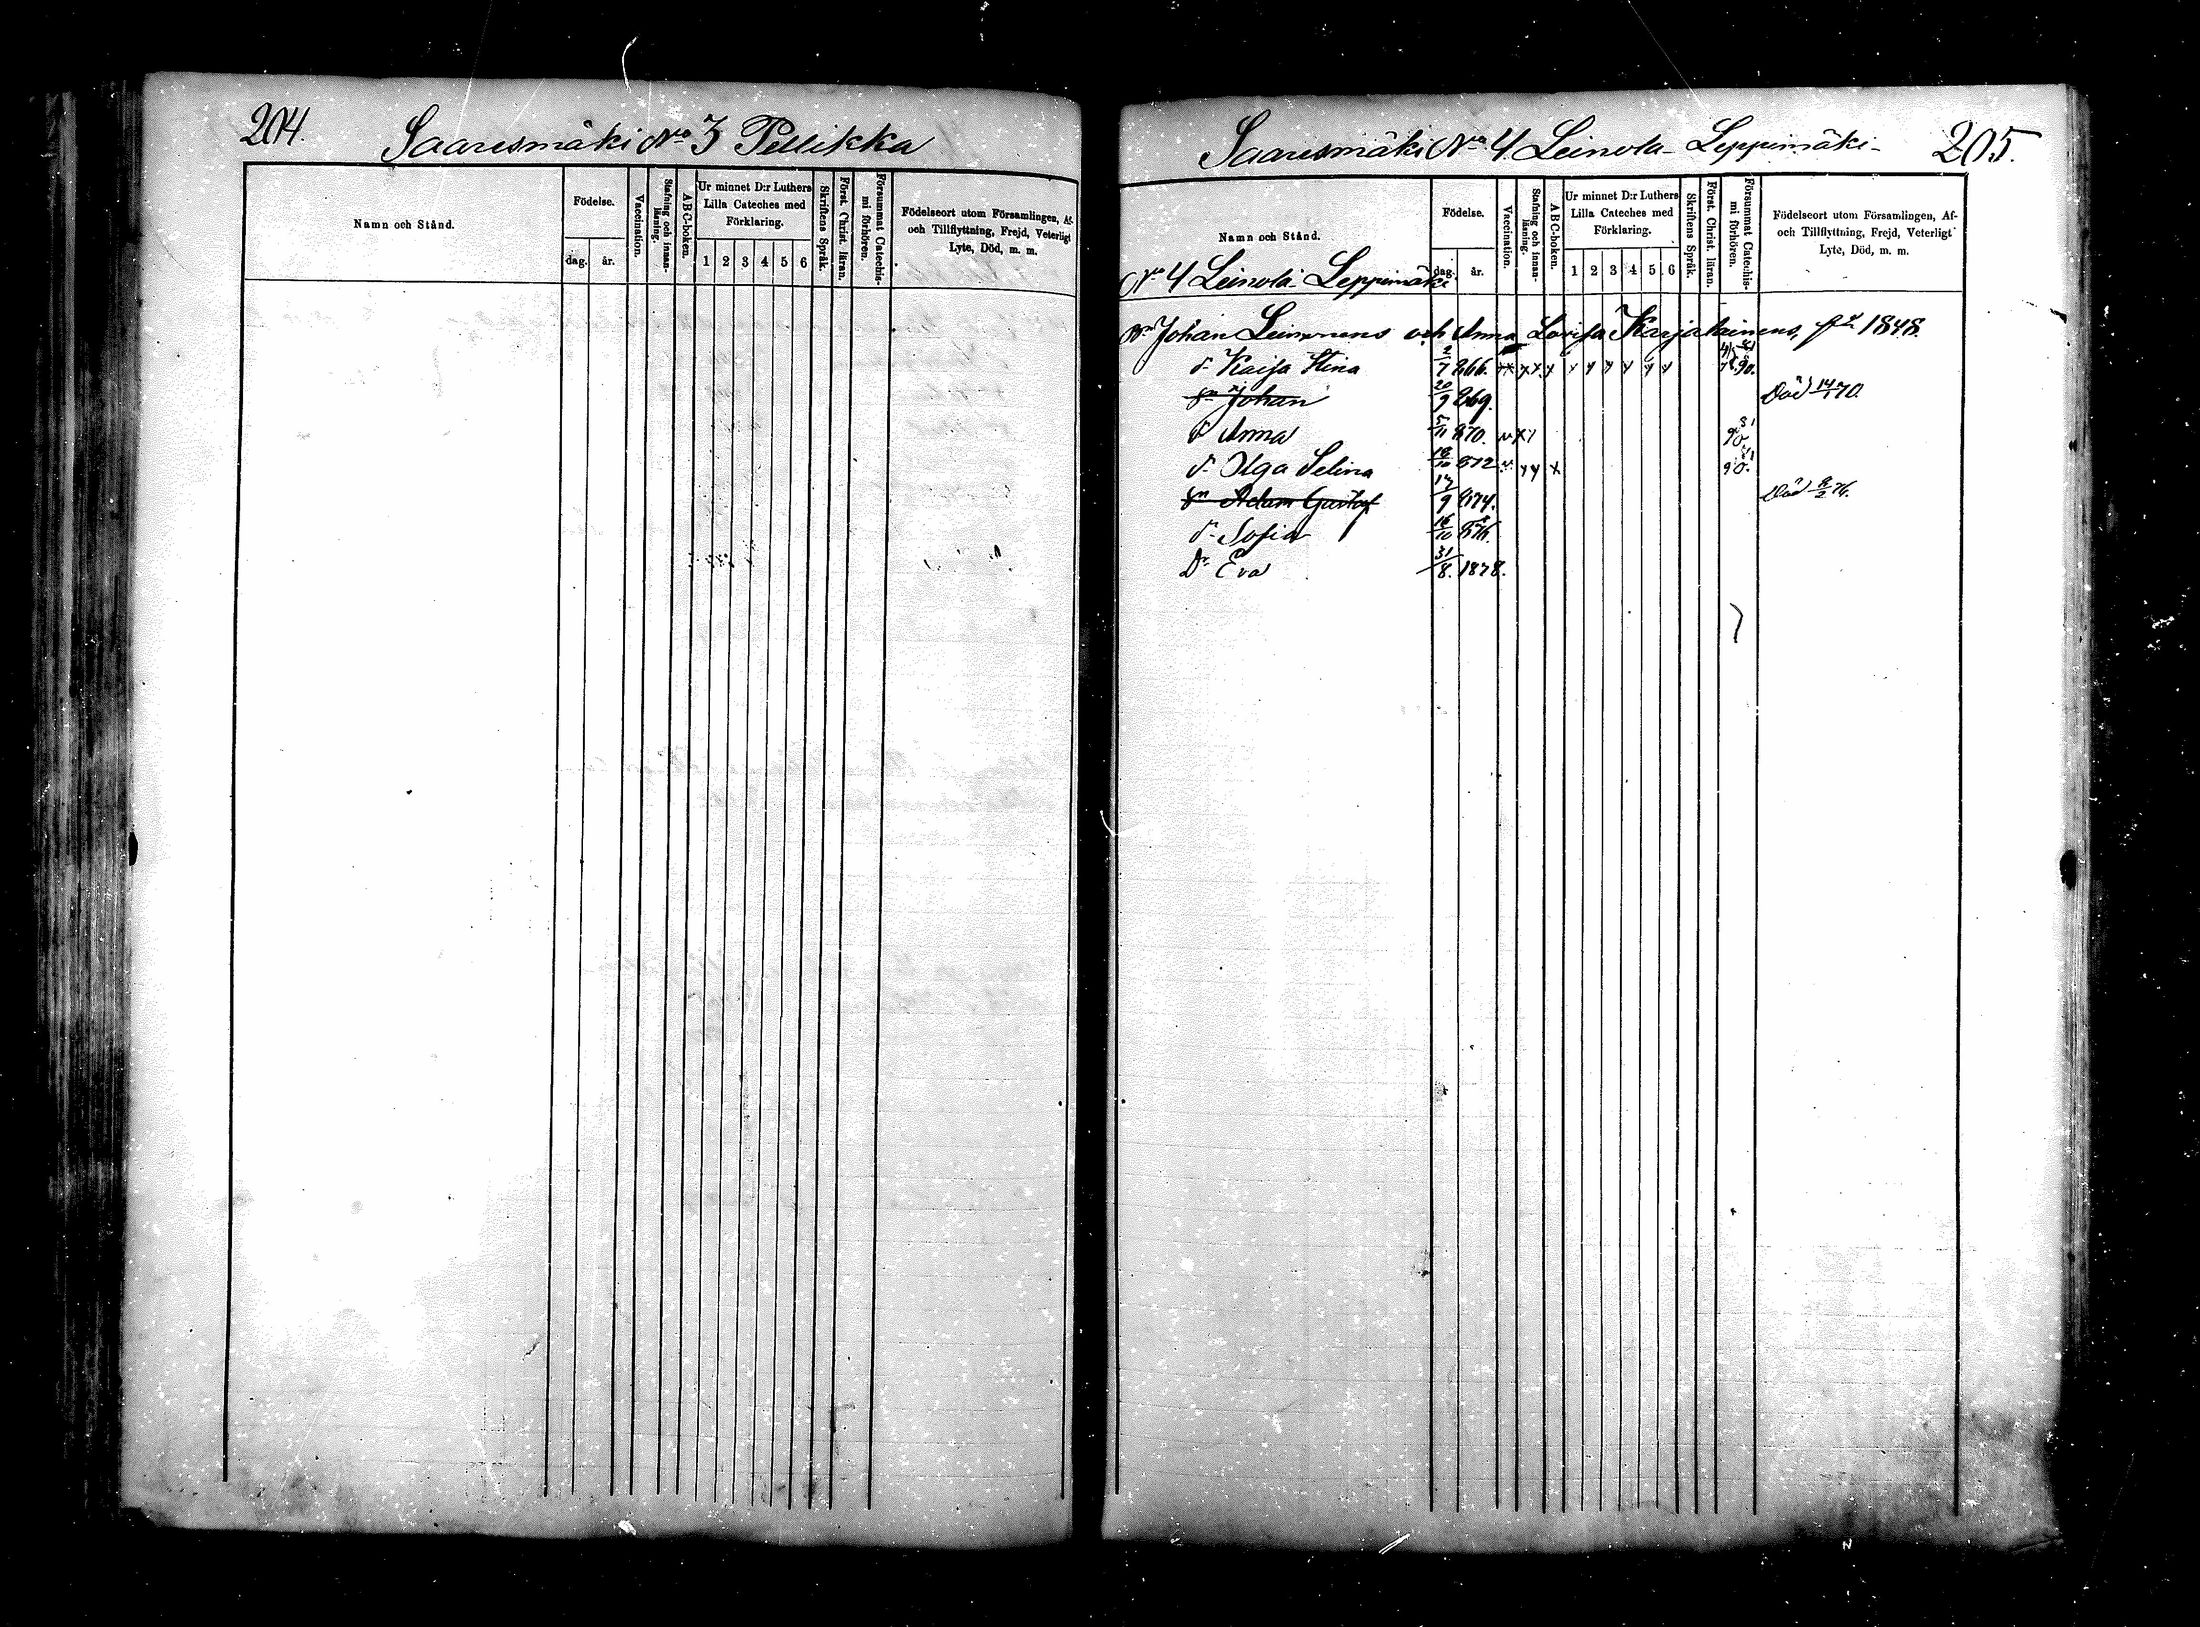 204.
Saaresmäki No 3 Pellikka
Namn och Stånd.
Födelse.
dag. år.
Vaccination.
Stafning och innan-läsning.
ABC-boken.
Ur minnet D:r Luthers
Lilla Cateches med
Förklaring.
1 2 3 4 5 6
Skriftens Språk.
Först. Christ. läran.
Försummat Catechis-
mi förhören.
Födelseort utom Församlingen, Af-
och Tillflyttning, Frejd, Veterligt
Lyte, Död, m. m.
Saaresmäki No 4 Leinola - Leppimäki - 205.
Namn och Stånd.
Födelse.
dag. år.
Vaccination.
Stafning och innan-
läsning.
ABC-boken.
Ur minnet D:r Luthers
Lilla Cateches med
Förklaring.
1 2 3 4 5 6
Skriftens Språk.
Först. Christ. läran.
Försummat Catechis-
mi förhören.
Födelseort utom Församlingen, Af-
och Tillflyttning, Frejd, Veterligt
Lyte, Död, m. m.
No 4 Leinola Leppimäki
Johan Leinonens och Anna Lovisa Karjalainens, 1848.
d. Kaisa Stina 2/7 866.
Sn Johan 20/9 869. Död 14/1 70.
d. Anna 5/11 870.
d. Olga Selina 18/10 872
Sn Adam Gustaf 17/9 874. Död 8/2 76.
d. Sofia 16/10 876.
Dr Eva 31/8. 1878.